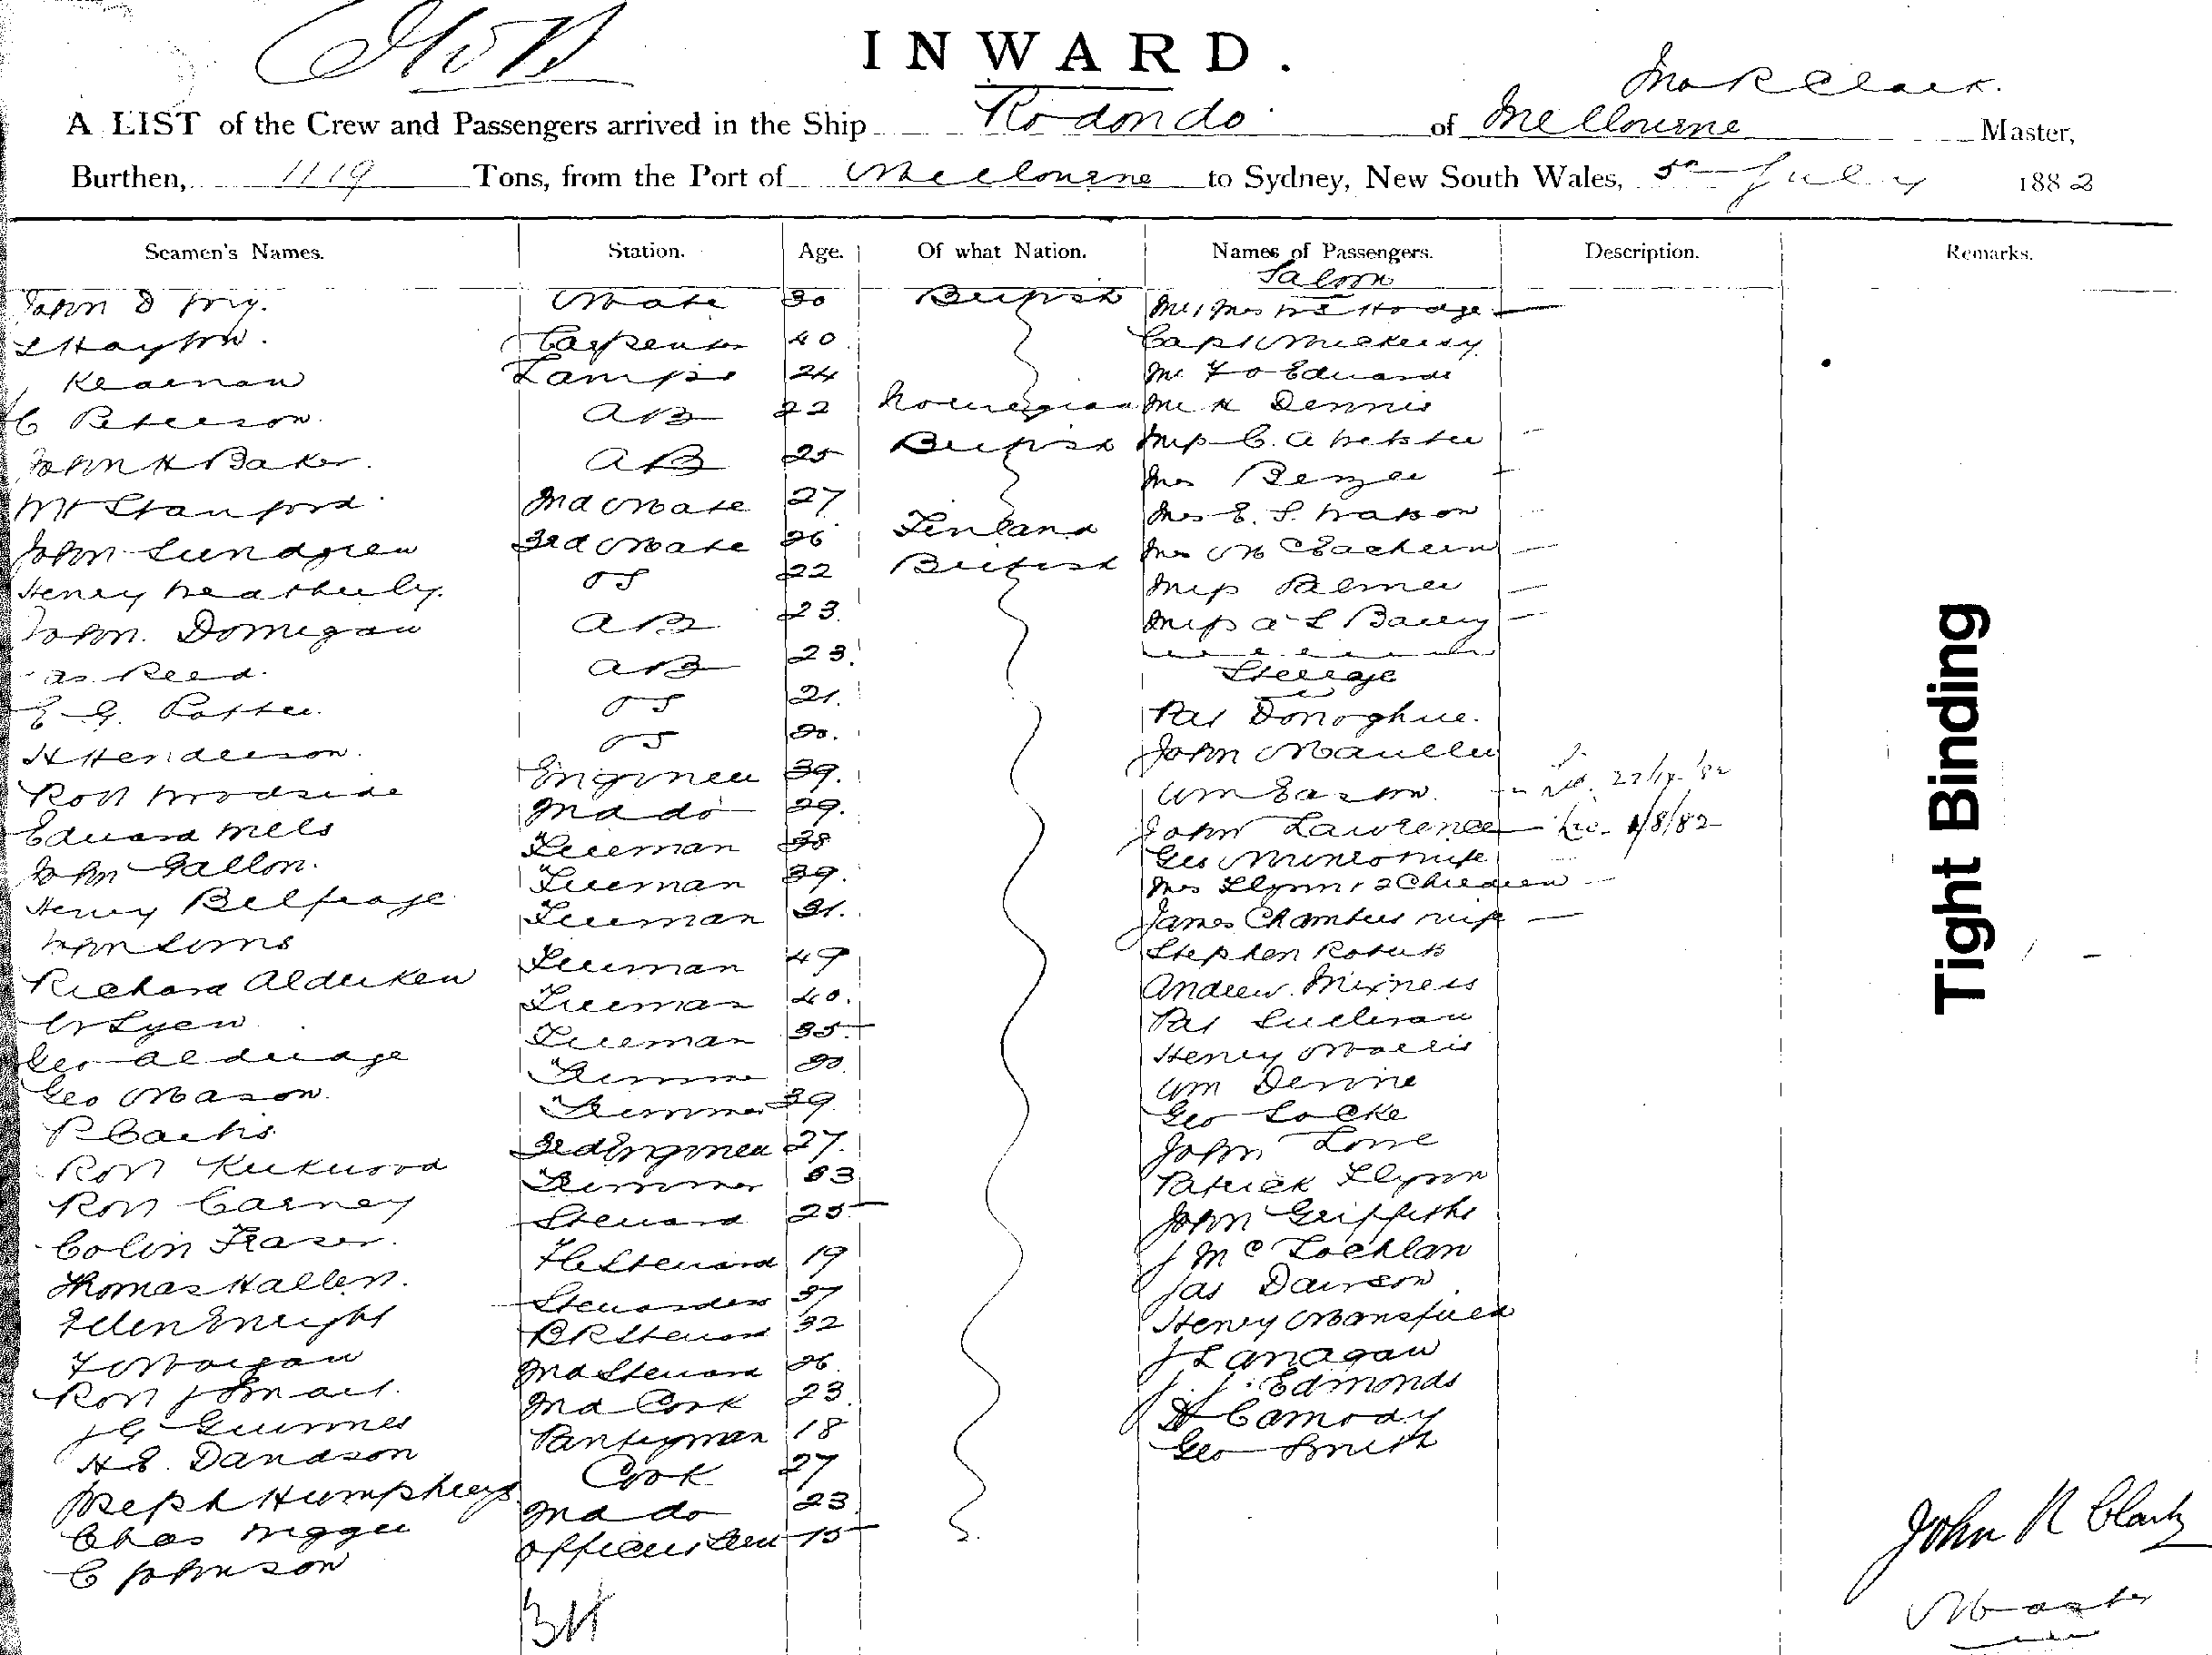 INWARD.
Jno R Clark.
A LIST of the Crew and Passengers arrived in the Ship Rodondo of Melbourne Master,
Burthen, 1119 Tons, from the Port of Melbourne to Sydney, New South Wales, 5th July 1882
Seamen's Names. Station. Age. Of what Nation. Names of Passengers. Description. Remarks.
Saloon
John D Fry. Mate 30 British Mr & Mrs Hodge
L Hayton. Carpenter 40 Capt
Kearnan Lamps 24 Mr F O Edwards
C Peterson. AB 22 Norwegian Mr H Dennis
John H Baker. AB 25 British Miss C. A Webster
Mrs
Stanford 2nd Mate 27 Mrs E. S. Watson
John Lundgren 3rd Mate 26 Finland Mrs McEachern
Henry Weatherly. OS 22 British Miss Palmer
John Domigan AB 23. Miss A L Barry
as Reed. AB 23. Steerage
E G. Potter. OS 21. Pat Donoghue.
H Henderson. OS 20. John
Robt Woodside Engineer 39. Wm Eason.
Edward Mels 2nd do 29. John Lawrence 1/8/82
John Gallon. Fireman 38 Geo Munro wife
Henry Belfrage Fireman 39. Mrs Flynn & 2 Children
Fireman 31. James Chambers wife
Richard Alderken Fireman 49 Stephen Roberts
Lyen Fireman 40. Andrew
Geo Aldridge Fireman 35 Pat Sullivan
Geo Mason. Trimmer 30. Henry Morris
P Trimmer 39 Wm Devine
Robt Kirkwood 3rd Engineer 27. Geo Locke
Robt Carney Trimmer 33 John Lowe
Colin Fraser. Steward 25 Patrick Flynn
Thomas Hallen. F C Steward 19 John Griffiths
Ellen Enright Stewardess 37 J McLochlan
F Morgan B R Steward 32 Jas Dawson
Robt J Smart. 2nd Steward 26. Henry Mansfield
J G Guinnes 2nd Cook 23. J Lanagan
H E. Davidson Pantryman 18 J. J. Edmonds
Joseph Humphreys Cook 27 D Camody
Chas 2nd do 23. Geo Smith
C Johnson Officers Serv 15
34
John R Clark
Master
Tight Binding